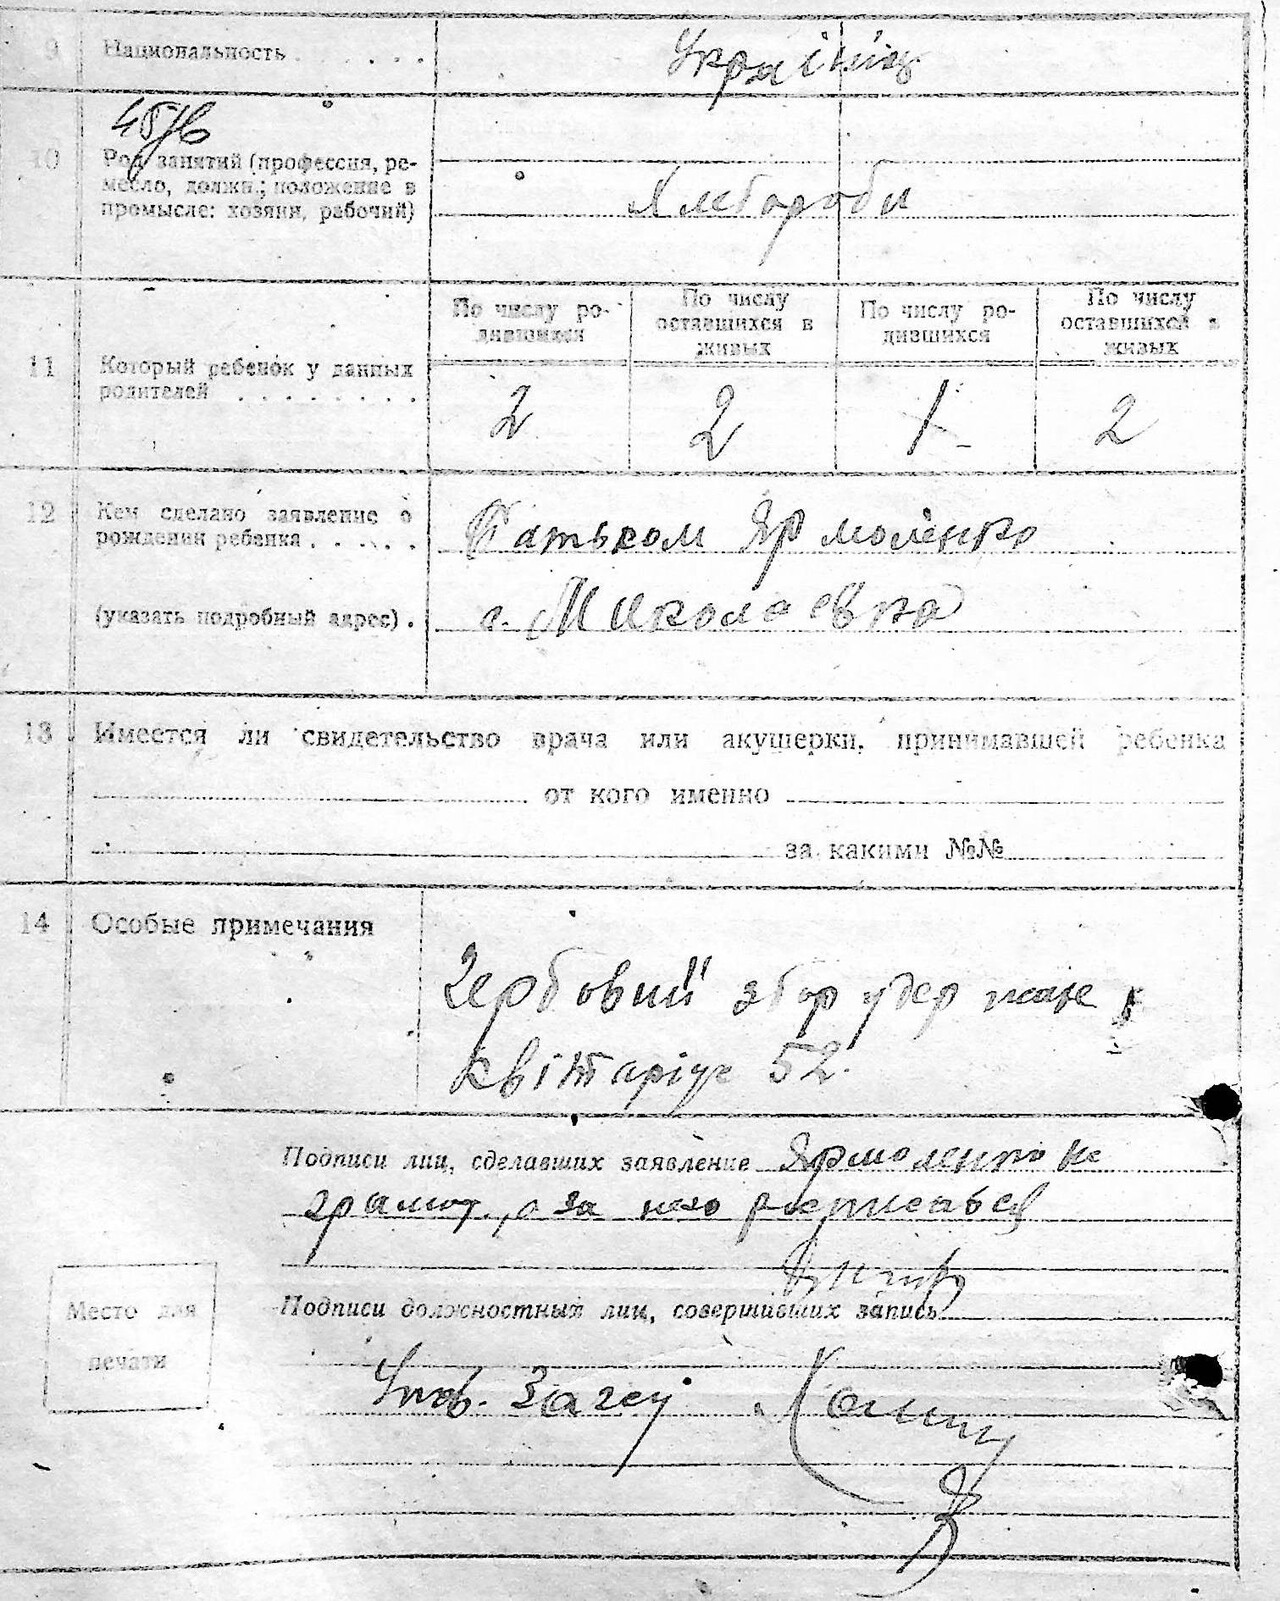 9 Национальность . . . . . . Українці
10 Род занятий (профессия, ре-
месло, должн.; положение в
промысле: хозяин, рабочий)
Хлебороби
По числу ро-
дившихся
По числу
оставшихся в
живых
По числу ро-
дившихся
По числу
оставшихся в
живых
11 Который ребенок у данных
родителей . . . . . . . .
2 2 1 2
12 Кем сделано заявление о
рождении ребенка . . . . . .
Батьком Ярмоленко
(указать подробный адрес) . с. Миколаевка
13 Имеется ли свидетельство врача или акушерки, принимавшей ребенка
от кого именно
за какими №№
14 Особые примечания
Гербовий збор удержане
квітаріус 52.
Подписи лиц, сделавших заявление Ярмоленко не
грамот., а за него расписався
Подписи должностных лиц, совершивших запись
Место для
печати
Упов. Загсу